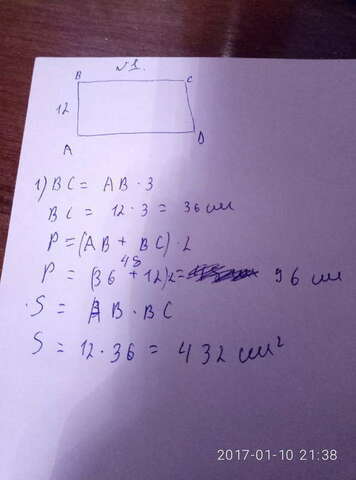 №1.
B C
12
A D
1) BC = AB · 3
BC = 12 · 3 = 36 см
P = (AB + BC) · 2
48
P = (36 + 12)2 = 96 см
S = AB · BC
S = 12 · 36 = 432 см²
2017-01-10 21:38